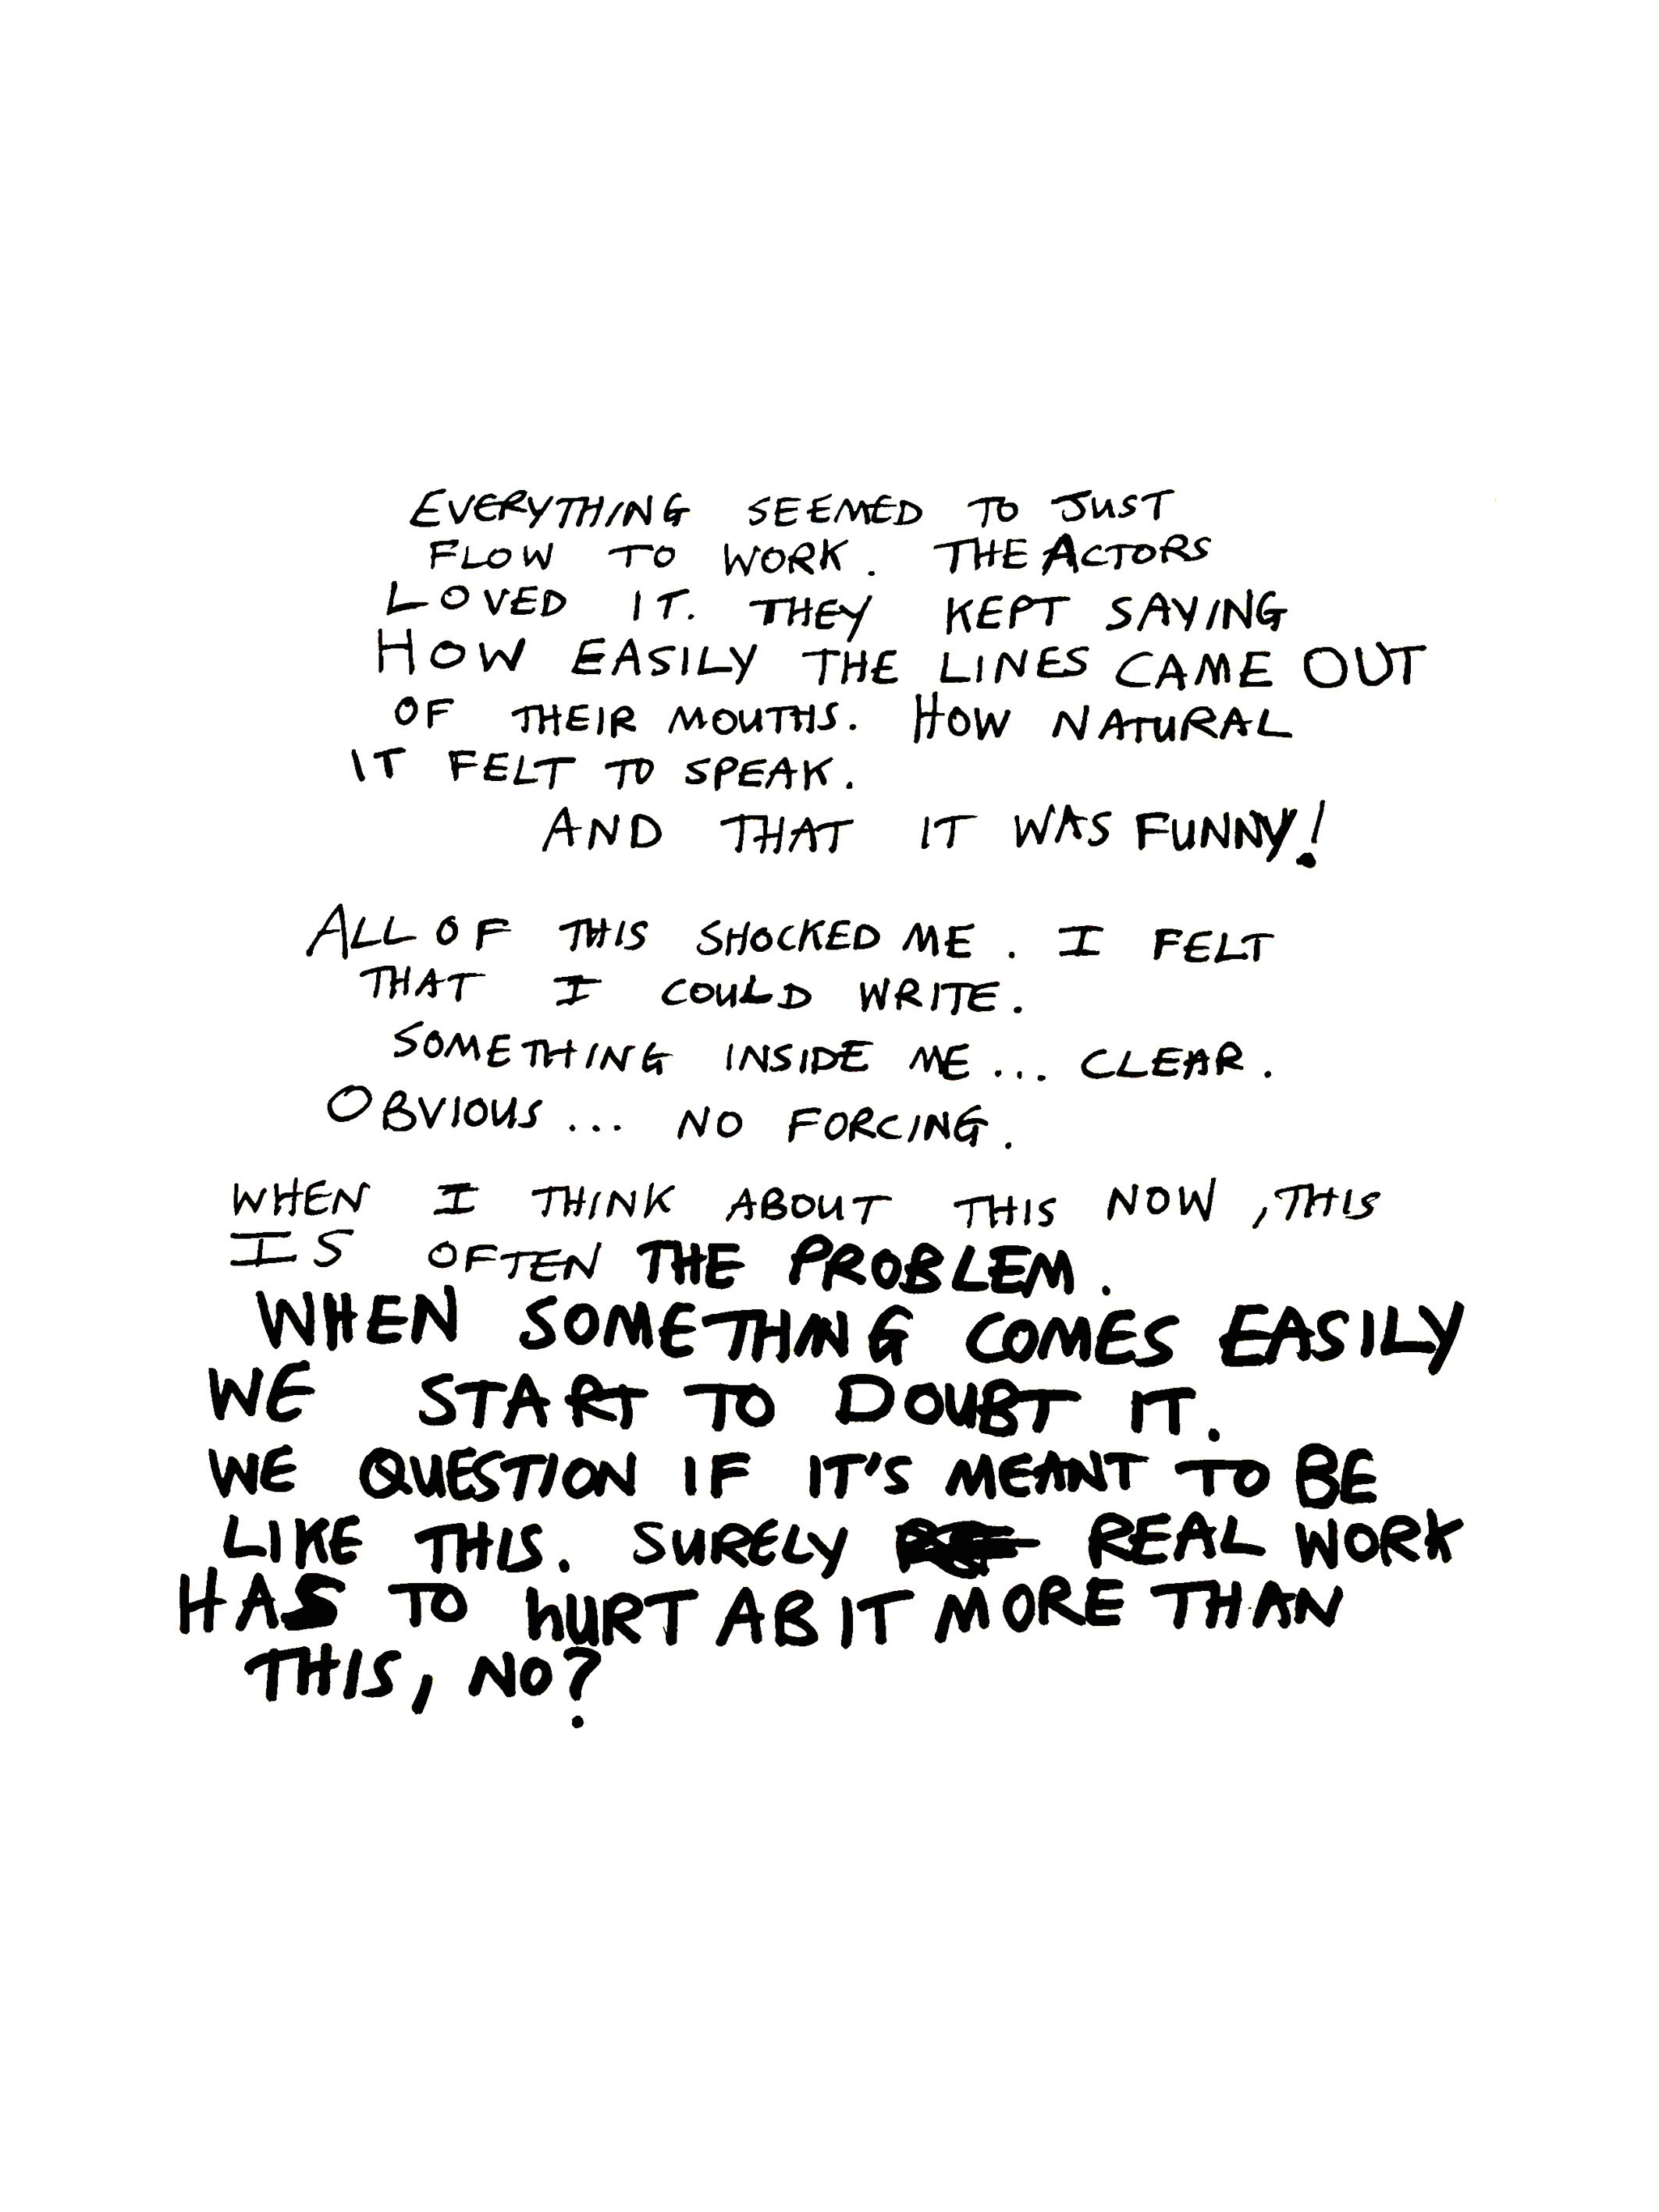 EVERYTHING SEEMED TO JUST
FLOW TO WORK. THE ACTORS
LOVED IT. THEY KEPT SAYING
HOW EASILY THE LINES CAME OUT
OF THEIR MOUTHS. HOW NATURAL
IT FELT TO SPEAK.
AND THAT IT WAS FUNNY!
ALL OF THIS SHOCKED ME. I FELT
THAT I COULD WRITE.
SOMETHING INSIDE ME... CLEAR.
OBVIOUS... NO FORCING.
WHEN I THINK ABOUT THIS NOW, THIS
IS OFTEN THE PROBLEM.
WHEN SOMETHING COMES EASILY
WE START TO DOUBT IT.
WE QUESTION IF IT'S MEANT TO BE
LIKE THIS. SURELY REAL WORK
HAS TO hURT A BIT MORE THAN
THIS, NO?